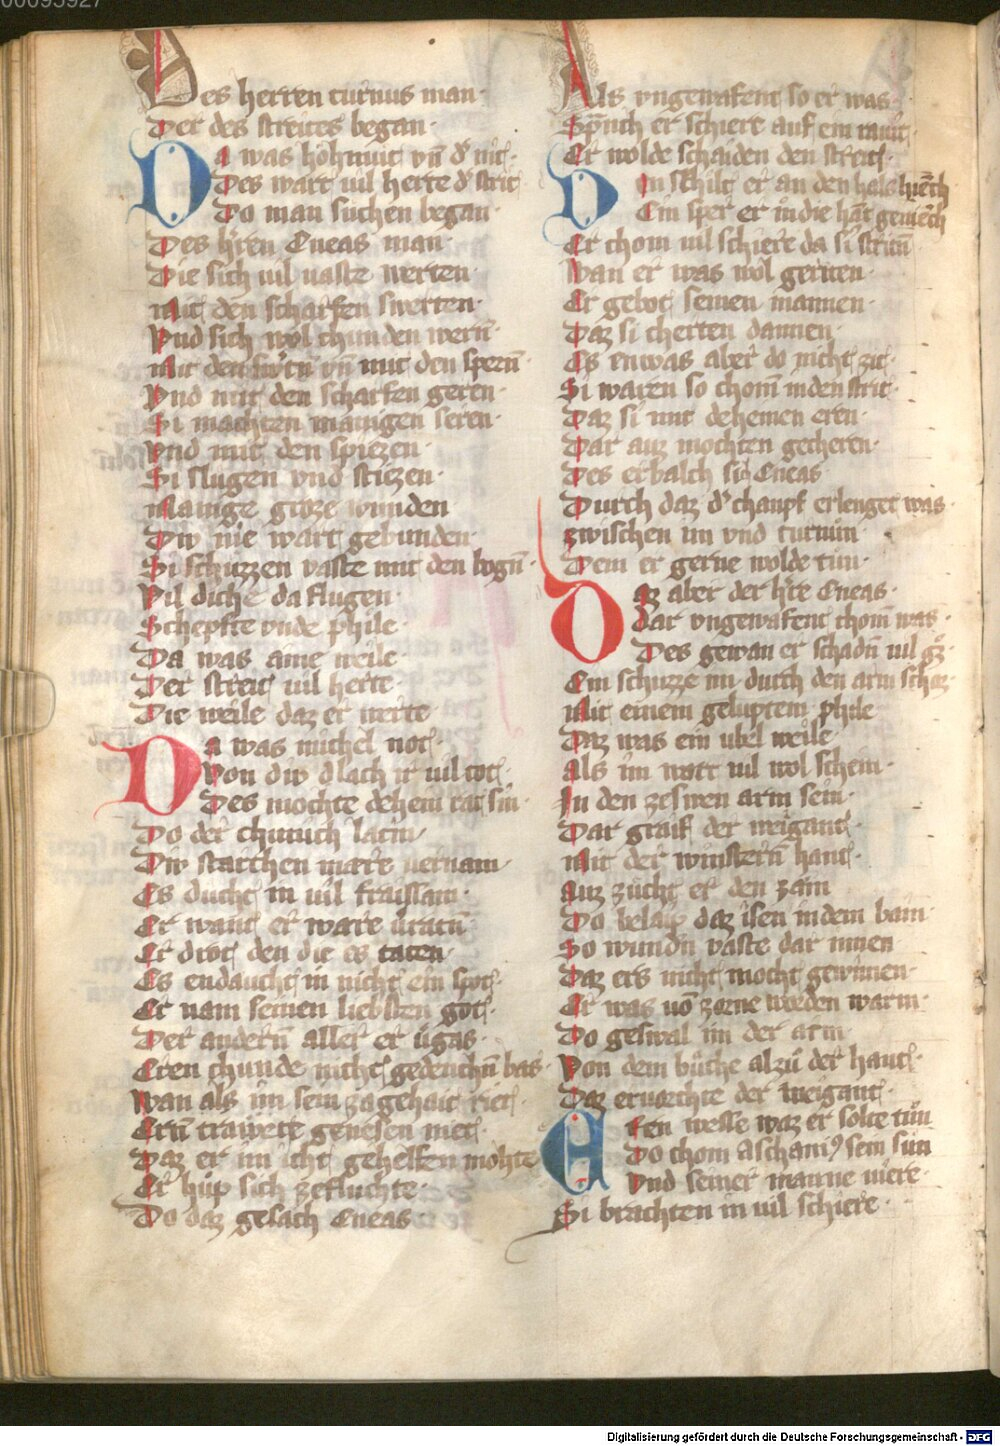 00095927
Des herren turnus man·
Der des streites began·
Da was hohmuit vn̄ dʼ nit·
Des wart uil herte dʼ strit
Do man suchen began·
Des hʼren Eneas man·
Die sich uil uaste werten·
Mit den scharfen swerten·
Vnd sich wol chunden wern̄·
Mit den swʼtn̄ vn̄ mit den spern̄·
Vnd mit den scharfen geren·
Si machten manigen seren·
Vnd mit den spiezen·
Si slugen vnd stiezen·
Manige groze wunden
Diw nie wart gebunden·
Si schuzzen vaste mit den bogn̄·
Vil diche da flugen·
Schepfte vnde phile·
Da was aine weile
Der streit uil herte
Die weile daz er werte·
Da was michel not·
Von diw dlach ir uil tot·
Des mochte dehein rat sin·
Do der chunich latin·
Diw starchen mare uernam·
Es ducht in uil fraissam·
Er want er ware uratn̄·
Er drot den die es taten·
Es endaucht in nicht ein spot·
Er nam seinen liebsten got·
Der andern̄ aller er ugas·
Eren chunde nicht gedenchn̄ bas·
Wan als im sein zagehait riet·
Ern̄ trawete genesen niet·
Daz er im icht gehelfen mohte
Er hup sich zefluchte·
Do daz gesach Eneas·
Als vngewafent so er was·
Sp̄nch er schiere auf ein rauit
Er wolde schaiden den streit·
Den schilt er an den hals hiēch
Ein sper er in die hāt geuiēch
Er chom uil schiere da si stritn̄
Wan er was wol geriten·
Er gebot seinen mannen·
Daz si cherten dannen·
Es enwas aber do nicht zit·
Si waren so chom̄ in den strit·
Daz si mit deheinen eren·
Dar auz mochten gecheren·
Des erbalch sich Eneas·
Durch daz dʼ champf erlenget was·
zwischen im vnd turnum
Dem er gerne wolde tun·
Daz aber der hʼre Eneas·
Dar vngewafent chom̄ was·
Des gewan er schadn̄ uil gͦz·
Ein schuzze im durch den arm schoz·
Mit einem geluptem phile
Daz was ein ubel weile
Als im wart uil wol schein·
In den zeswen arm sein·
Dar graif der weigant·
Mit der winstern̄ hant·
Auz zucht er den zain
Do belaip daz isen in dem bain·
So wundn̄ vaste dar innen
Daz ers nicht mocht gewinnen·
Er was uō zorne worden warm·
Do geswal im der arm
Von dem buche alzu der hant·
Daz eruorchte der weigant·
Eren wesse waz er solte tun
Do chom Aschaniꝰ sein sun
Vnd seiner manne uiere·
Si brachten in uil schiere·
Digitalisierung gefördert durch die Deutsche Forschungsgemeinschaft - DFG